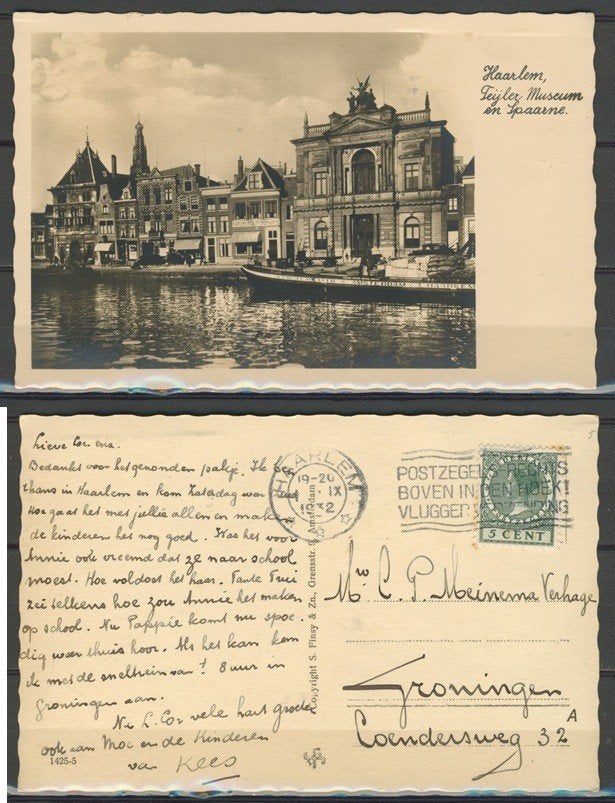 Haarlem,
Teijler Museum
en Spaarne.
Lieve Cor enz.
Bedankt voor het gezonden pakje. Ik ben
thans in Haarlem en kom Zaterdag weer
hoe gaat het met jullie allen en maken
de kinderen het nog goed. Was het voor
Annie ook vreemd dat ze naar school
moest. Hoe voldoet het haar. Tante Trui
zei telkens hoe zou Annie het maken
op school. Nu Pappie komt nu spoe-
dig weer thuis hoor. Als het kan kom
ik met de sneltrein van 1 uur in
Groningen aan.
Nu L. Cor vele hart groeten
ook aan Moe en de Kinderen
van Kees
1425-5
Copyright S. Finsy & Zn., Grensstr. Amsterdam
HAARLEM
19-20
IX
POSTZEGELS RECHTS
BOVEN IN DEN HOEK!
VLUGGER
5 CENT
Mw C. P. Meinema Verhage
Groningen
Coendersweg 32 A